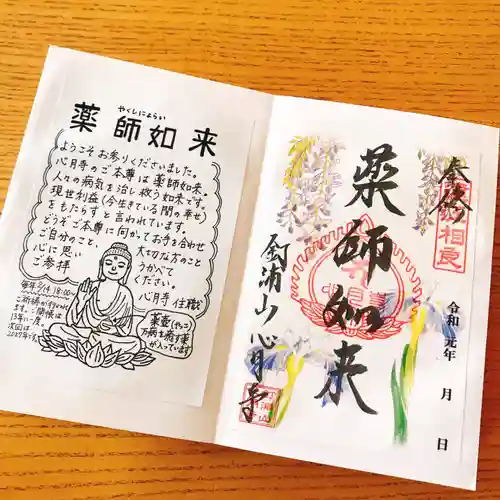 やくしにょらい
薬師如来
ようこそお参りくださいました。
心月寺のご本尊は薬師如来。
人々の病気を治し救う如来です。
現世利益(今生きている間の幸せ)
をもたらすと言われています。
どうぞご本尊に向かってお手を合わせ
ご自分のこと、大切な方のこと
心に思いうかべて
ご参拝ください。
心月寺 住職
毎年9/14 18:00〜
ご祈祷が行われ
ます。ご開帳は
13年に一度。
次回は
2027年です。
薬壺(やっこ)
万病を癒す薬
が入っています
奉修
相良
薬師如来
釘浦山心月寺
令和元年 月 日